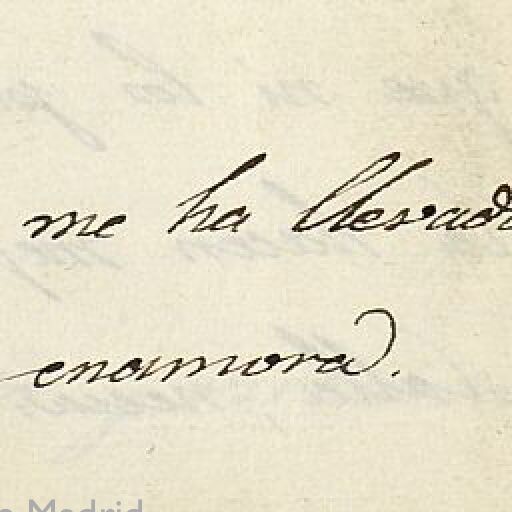 me ha llevad
enamora.
Madrid